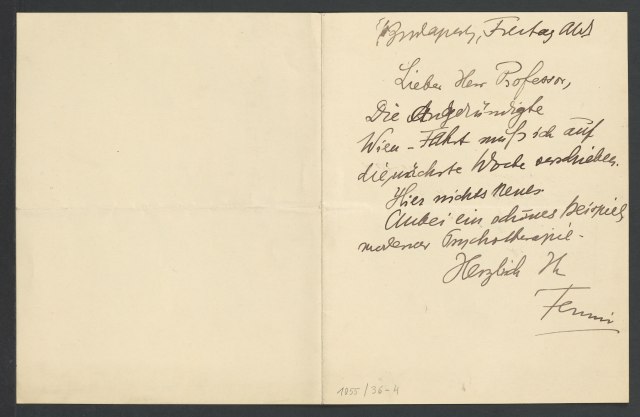 Budapest, Freitag Abd
Lieber Herr Professor,
Die angekündigte
Wien-Fahrt muß ich auf
die nächste Woche verschieben.
Hier nichts Neues.
Anbei ein schönes Beispiel
moderner Psychotherapie.
Herzlich Ihr
1055/36-4